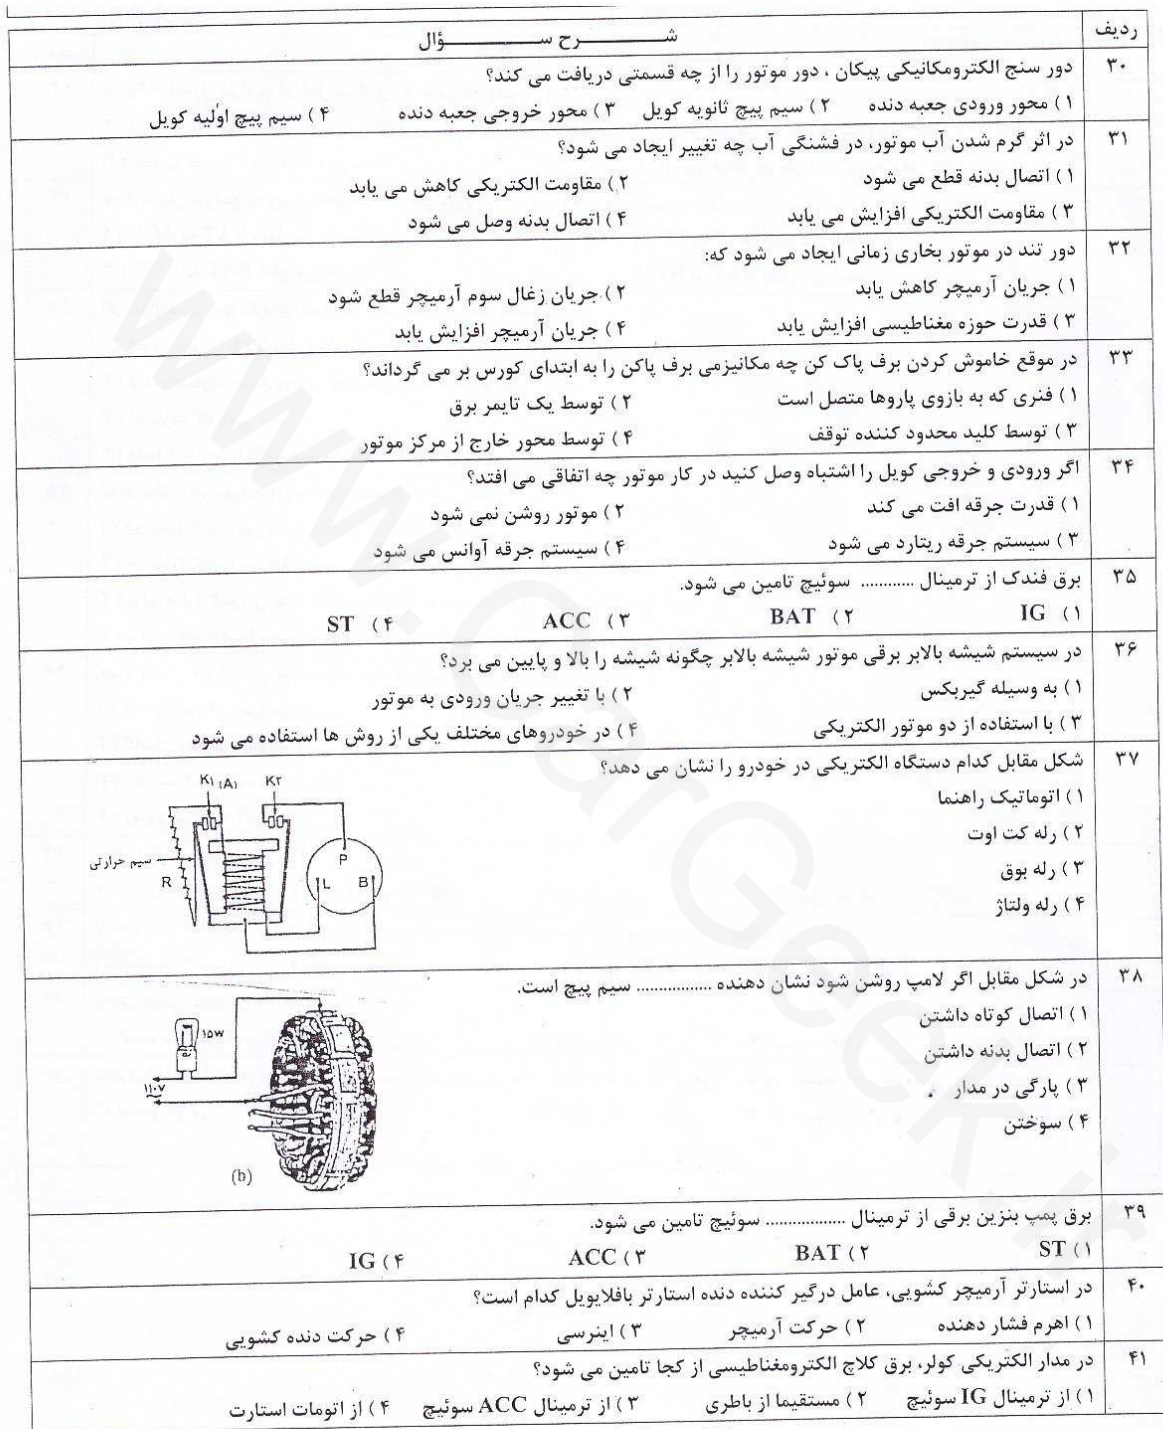 ردیف شـــــــرح ســـــــؤال
۳۰ دور سنج الکترومکانیکی پیکان ، دور موتور را از چه قسمتی دریافت می کند؟
۱) محور ورودی جعبه دنده ۲) سیم پیچ ثانویه کویل ۳) محور خروجی جعبه دنده ۴) سیم پیچ اولیه کویل
۳۱ در اثر گرم شدن آب موتور، در فشنگی آب چه تغییر ایجاد می شود؟
۱) اتصال بدنه قطع می شود ۲) مقاومت الکتریکی کاهش می یابد
۳) مقاومت الکتریکی افزایش می یابد ۴) اتصال بدنه وصل می شود
۳۲ دور تند در موتور بخاری زمانی ایجاد می شود که:
۱) جریان آرمیچر کاهش یابد ۲) جریان زغال سوم آرمیچر قطع شود
۳) قدرت حوزه مغناطیسی افزایش یابد ۴) جریان آرمیچر افزایش یابد
۳۳ در موقع خاموش کردن برف پاک کن چه مکانیزمی برف پاکن را به ابتدای کورس بر می گرداند؟
۱) فنری که به بازوی پاروها متصل است ۲) توسط یک تایمر برق
۳) توسط کلید محدود کننده توقف ۴) توسط محور خارج از مرکز موتور
۳۴ اگر ورودی و خروجی کویل را اشتباه وصل کنید در کار موتور چه اتفاقی می افتد؟
۱) قدرت جرقه افت می کند ۲) موتور روشن نمی شود
۳) سیستم جرقه ریتارد می شود ۴) سیستم جرقه آوانس می شود
۳۵ برق فندک از ترمینال ............ سوئیچ تامین می شود.
۱) IG ۲) BAT ۳) ACC ۴) ST
۳۶ در سیستم شیشه بالابر برقی موتور شیشه بالابر چگونه شیشه را بالا و پایین می برد؟
۱) به وسیله گیربکس ۲) با تغییر جریان ورودی به موتور
۳) با استفاده از دو موتور الکتریکی ۴) در خودروهای مختلف یکی از روش ها استفاده می شود
۳۷ شکل مقابل کدام دستگاه الکتریکی در خودرو را نشان می دهد؟
۱) اتوماتیک راهنما
۲) رله کت اوت
۳) رله بوق
۴) رله ولتاژ
K۱ (A) K۲
P
سیم حرارتی
R L B
۳۸ در شکل مقابل اگر لامپ روشن شود نشان دهنده ................. سیم پیچ است.
۱) اتصال کوتاه داشتن
۲) اتصال بدنه داشتن
۳) پارگی در مدار
۴) سوختن
۱۵W
۱۱۰۷
(b)
۳۹ برق پمپ بنزین برقی از ترمینال .................. سوئیچ تامین می شود.
۱) ST ۲) BAT ۳) ACC ۴) IG
۴۰ در استارتر آرمیچر کشویی، عامل درگیر کننده دنده استارتر بافلایویل کدام است؟
۱) اهرم فشار دهنده ۲) حرکت آرمیچر ۳) اینرسی ۴) حرکت دنده کشویی
۴۱ در مدار الکتریکی کولر، برق کلاچ الکترومغناطیسی از کجا تامین می شود؟
۱) از ترمینال IG سوئیچ ۲) مستقیما از باطری ۳) از ترمینال ACC سوئیچ ۴) از اتومات استارت
www.CarGeek.ir